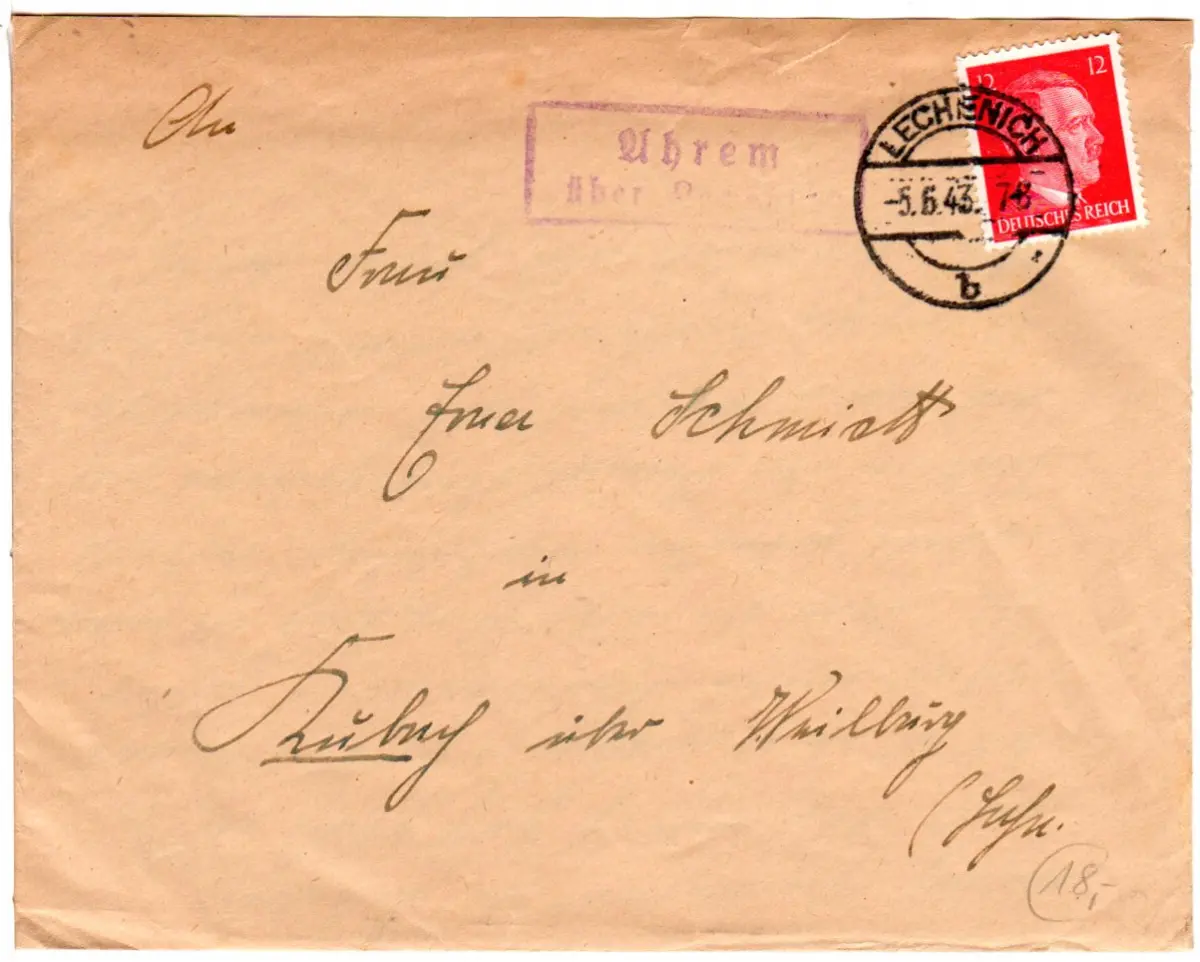 An
Ahrem
über
12 12
LECHENICH
-5.6.43. 7-8
DEUTSCHES REICH
b
Frau
Erna Schmidt
in
Kubach über Weilburg
(Lahn.
18,-